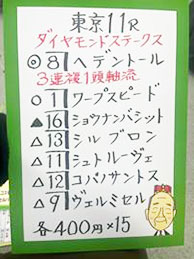 東京11R
ダイヤモンドステークス
◎8 ヘデントール
3連複1頭軸流
○1 ワープスピード
▲16 ショウナンバシット
△13 シルブロン
△11 シュトルーヴェ
△12 コパノサントス
△9 ヴェルミセル
各400円×15